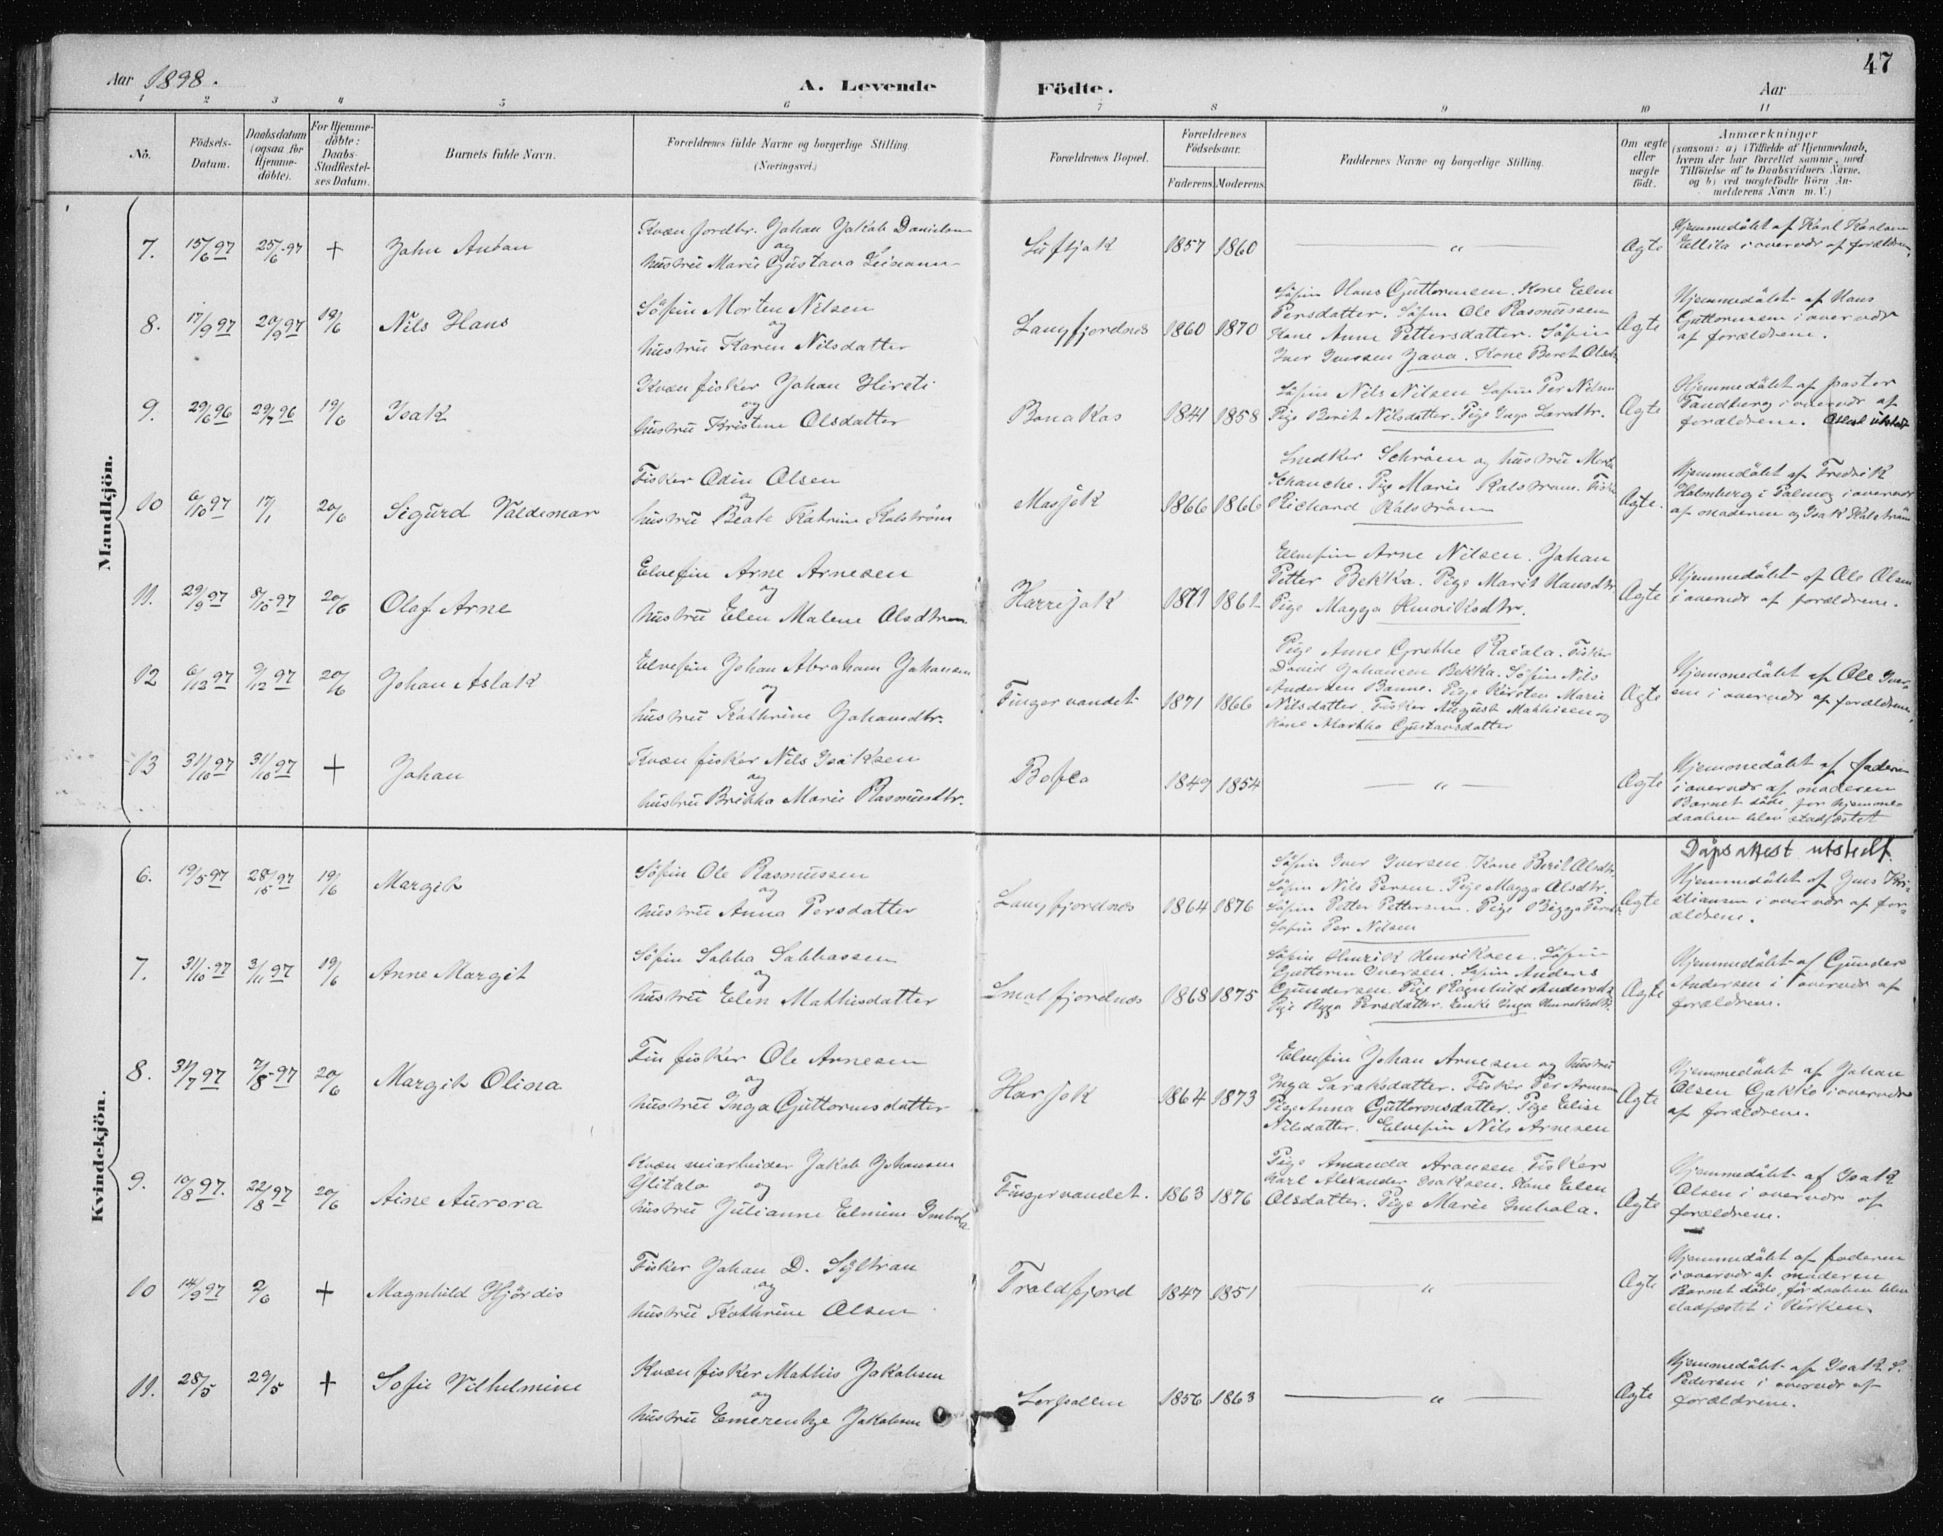 47
Aar 1898.
A. Levende Födte.
Aar
1 2 3 4 5 6 7 8 9 10 11
No.
Födsels-Datum.
Daabsdatum (ogsaa for Hjemme-döbte).
For Hjemme-döbte: Daabs-Stadfæstel-ses Datum.
Barnets fulde Navn.
Forældrenes fulde Navne og borgerlige Stilling.
(Næringsvei.)
Forældrenes Bopæl.
Forældrenes Födselsaar.
Faderens. Moderens.
Faddernes Navne og borgerlige Stilling.
Om ægte eller uægte födt.
Anmærkninger
(saasom: a) i Tilfælde af Hjemmedaab,
hvem der har forrettet samme, med
Tilföielse af to Daabsvidners Navne,
og b) ved uægtefödte Börn An-
melderens Navn m. V.)
Mandkjön.
7. 15/6 97 25/6 97 + John Anton
Kvæn jordbr. Johan Jakob Danielsen
og
hustru Marie Gustava
Luftjok 1857 1860 — " — Ægte
Hjemmedöbt af Karl Karlsen
i overvær af forældrene.
8. 17/9 97 20/9 97 19/6 Nils Hans
Söfin Morten Nilsen
og
hustru Karen Nilsdatter
Langfjordnes 1860 1870
Söfin Hans Guttormsen. Kone Elen
Persdatter. Söfin Ole Rasmussen
Kone Anne Pettersdatter. Söfin
Iver Iversen Java. Kone Beret Olsdtr
Ægte
Hjemmedöbt af Hans
Guttormsen i overvær
af forældrene.
9. 29/6 96 29/7 96 19/6 Isak
Kvæn fisker Johan Hirsti
og
hustru Kristine Olsdatter
Bonakas 1841 1858
Söfin Nils Nilsen Söfin Per Nilsen
Pige Berit Nilsdatter. Pige Inga
Ægte
Hjemmedöbt af pastor
Tandberg i overvær af
forældrene.
10 6/10 97 17/1 20/6 Sigurd Valdemar
Fisker Odin Olsen
og
hustru Beate Katrine Kalström
Masjok 1866 1866
Snedker Schröen og hustru
Schanche. Pige Marie Kalström. Fisker
Richard Kalström
Ægte.
Hjemmedöbt af Fredrik
Holmberg i Polmag i overvær
af moderen og Isak Kalström
11. 29/9 97 8/10 97 20/6 Olaf Arne
Elvefin Arne Arnesen
og
hustru Elen Malene Olsdtr
Harrejok 1871 1861
Elvefin Arne Nilsen. Johan
Petter Bekka. Pige Marit Hansdtr.
Pige Magga Henriksdtr.
Ægte
Hjemmedöbt af Ole Olsen
i overvær af forældrene.
12 6/12 97 9/12 97 20/6 Johan Aslak
Elvefin Johan Abraham Johansen
og
hustru Kathrine Johansdtr.
Fingervandet 1871 1866
Pige Anne Grethe Fisker
David Johansen Bekka. Söfin Nils
Andersen Banne. Pige Kirsten Marie
Nilsdatter. Fisker August Mathisen og
Kone Martha Gustavsdatter
Ægte
Hjemmedöbt af Ole Iver-
sen i overvær af forældrene.
13 31/10 97 31/10 97 + Johan
Kvæn fisker Nils Isaksen
og
hustru Britha Marie Rasmusdtr.
1849 1854 — " — Ægte
Hjemmedöbt af faderen
i overvær af moderen
Barnet döde, för hjemme-
daaben blev stadfæstet
Kvindekjön.
Dåpsattest utstedt
6. 19/5 97 28/5 97 19/6 Margit
Söfin Ole Rasmussen
og
hustru Anna Persdatter
Langfjordnes 1864 1876
Söfin Iver Iversen. Kone Beret Olsdtr.
Söfin Nils Persen. Pige Magga Olsdtr.
Söfin Petter Pettersen. Pige Bigga
Söfin Per Nilsen
Ægte
Hjemmedöbt af Jens Kri-
stiansen i overvær af for-
ældrene.
7. 31/10 97 3/11 97 19/6 Anne Margit
Söfin Sabba Sabbasen
og
hustru Elen Mathisdatter
Smalfjordnes 1868 1875
Söfin Henrik Henriksen. Söfin
Guttorm Iversen. Söfin Anders
Gundersen. Pige Ragnhild
Pige Persdatter. Enke Inga
Ægte
Hjemmedöbt af Gunder
Andersen i overvær af
forældrene.
8. 31/7 97 7/8 97 20/6 Margit Olina
Fin fisker Ole Arnesen
og
hustru Inga Guttormsdatter
Harjok 1864 1873
Elvefin Johan Arnesen og hustru
Inga Larsdatter. Fisker Per Arnesen
Pige Anna Guttormsdatter. Pige Elise
Nilsdatter. Elvefin Nils Arnesen
Ægte
Hjemmedöbt af Johan
Olsen Gjakko i overvær
af forældrene.
9. 10/8 97. 22/8 97 20/6 Aine Aurora
Kvæn veiarbeider Jakob Johansen
Ylitalo og
hustru Julianne Elmine
Fingervandet. 1863 1876
Pige Amanda Aronsen. Fisker
Karl Alexander Isaksen. Kone Elen
Olsdatter. Pige Marie
Ægte
Hjemmedöbt af Isak
Olsen i overvær af
forældrene.
10 14/9 97 2/6 + Magnhild Hjördis
Fisker Johan D. Syltran
og
hustru Kathrine Olsen
Troldfjord 1847 1851 " Ægte
Hjemmedöbt af faderen
i overvær af moderen
Barnet döde, för daaben blev
stadfæstet i Kirken.
11. 28/5 29/5 + Sofie Vilhelmine
Kvæn fisker Mathis Jakobsen
og
hustru Emerentze Jakobsen
1856 1863 — " — Ægte
Hjemmedöbt af Isak S.
Pedersen i overvær af
forældrene.